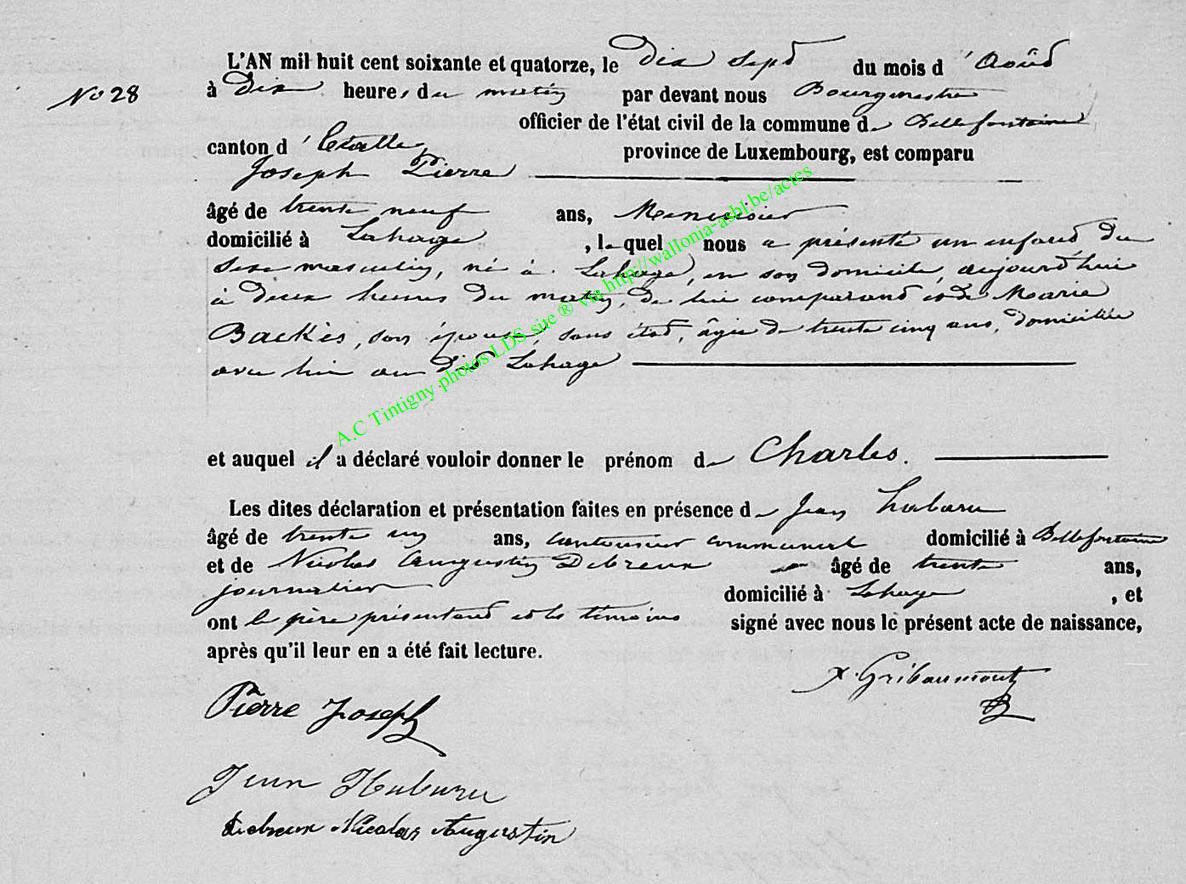 L'AN mil huit cent soixante et quatorze, le dix sept du mois d'Août
No 28
à dix heures du matin par devant nous Bourgmestre
officier de l'état civil de la commune de Bellefontaine
canton d'Etalle, province de Luxembourg, est comparu
Joseph Pierre
âgé de trente neuf ans, Menuisier
domicilié à Lahage, lequel nous a présenté un enfant du
sexe masculin, né à Lahage, en son domicile, aujourd'hui
à deux heures du matin, de lui comparant et de Marie
Backès, son épouse, sans état, âgée de trente cinq ans, domiciliée
avec lui au dit Lahage
et auquel il a déclaré vouloir donner le prénom de Charles.
Les dites déclaration et présentation faites en présence de Jean Habaru
âgé de trente un ans, cantonnier communal domicilié à Bellefontaine
et de Nicolas Augustin Debreux âgé de trente ans,
journalier domicilié à Lahage, et
ont le père présentant et les témoins signé avec nous le présent acte de naissance,
après qu'il leur en a été fait lecture.
Gribaumont
Pierre Joseph
Jean Habaru
Debreux Nicolas Augustin
A.C Tintigny photos LDS site ® via http://wallonia-asbl.be/actes